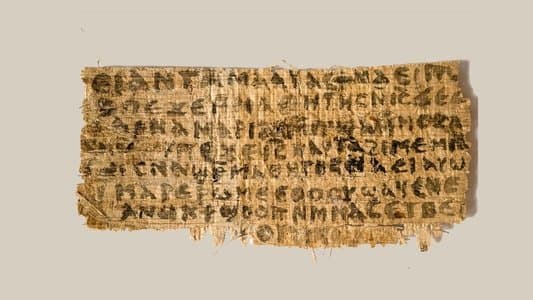 ⲉⲓ ⲁⲛ ⲧⲁⲙⲁⲁⲩ ⲁⲥϯ ⲛⲁⲉⲓ ⲡⲱ
ⲥ ⲡⲉϫⲉ ⲙⲙⲁⲑⲏⲧⲏⲥ ⲛⲓⲥ ϫⲉ ⲥ
ⲁⲣⲛⲁ ⲙⲁⲣⲓϩⲁⲙ ⲙⲡϣⲁ ⲙⲙⲟⲥ ⲁ
ⲡⲉϫⲉ ⲓⲥ ⲛⲁⲩ ⲧⲁϩⲓⲙⲉ ⲙⲛ
ⲥⲛⲁϣⲣⲙⲁⲑⲏⲧⲏⲥ ⲛⲁⲉⲓ ⲁⲩⲱ
ⲓ ⲙⲁⲣⲉⲣⲱⲙⲉ ⲉⲑⲟⲟⲩ ϣⲁϥⲉ ⲛⲉ
ⲁⲛⲟⲕ ϯϣⲟⲟⲡ ⲛⲙⲙⲁⲥ ⲉⲧⲃⲉ